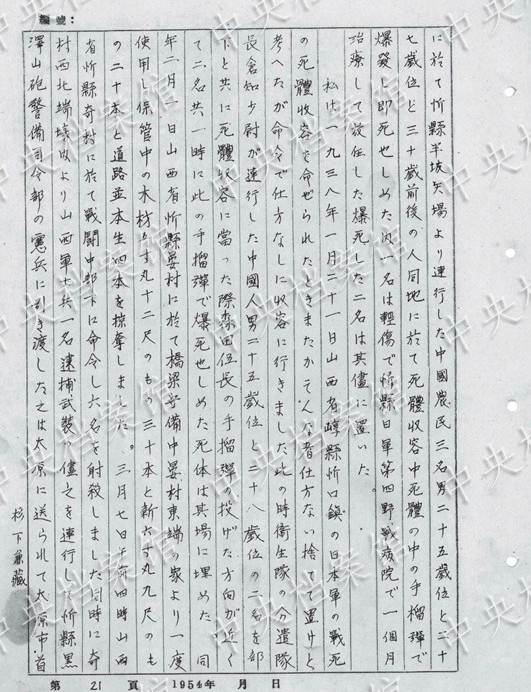 編號：
に於て忻縣半坡矢場より連行した中國農民三名男二十五歳位と二十
七歳位と三十歳前後の人同地に於て死體收容中死體の中の手榴彈で
爆發し即死せしめた内一名は輕傷で忻縣日軍第四野戰病院で一個月
治療して放任した爆死した二名は其儘に置いた。
私は一九三八年一月二十一日山西省崞縣忻口鎮の日本軍の戰死
の死體收容を命ぜられたときまたかそんな者仕方ない捨てて置けと
考へたが命令で仕方なしに收容に行きました此の時衛生隊の分遣隊
長倉知少尉が連行した中國人男二十五歳位と二十八歳位の二名を部
下と共に死體收容に當った際森田伍長の手榴彈の投げた方向が近く
て二名共一時に此の手榴彈で爆死せしめた死体は其場に埋めた 同
年二月二日山西省忻縣晏村に於て橋梁警備中晏村東端の家より一度
使用し保管中の木材 六寸丸十二尺のもの三十本と新六寸丸九尺のも
の二十本と道路並木生四本を掠奪しました。三月七日午前四時山西
省忻縣奇村に於て戰鬪中部下に命令し六名を射殺しました同時に奇
村西北端墳地より山西軍士兵一名逮捕武裝の儘之を連行した忻縣黒
澤山砲警備司令部の憲兵に引き渡した之は太原に送られて太原市首
杉下兼藏
第 21 頁 1954年 月 日
中央档案馆